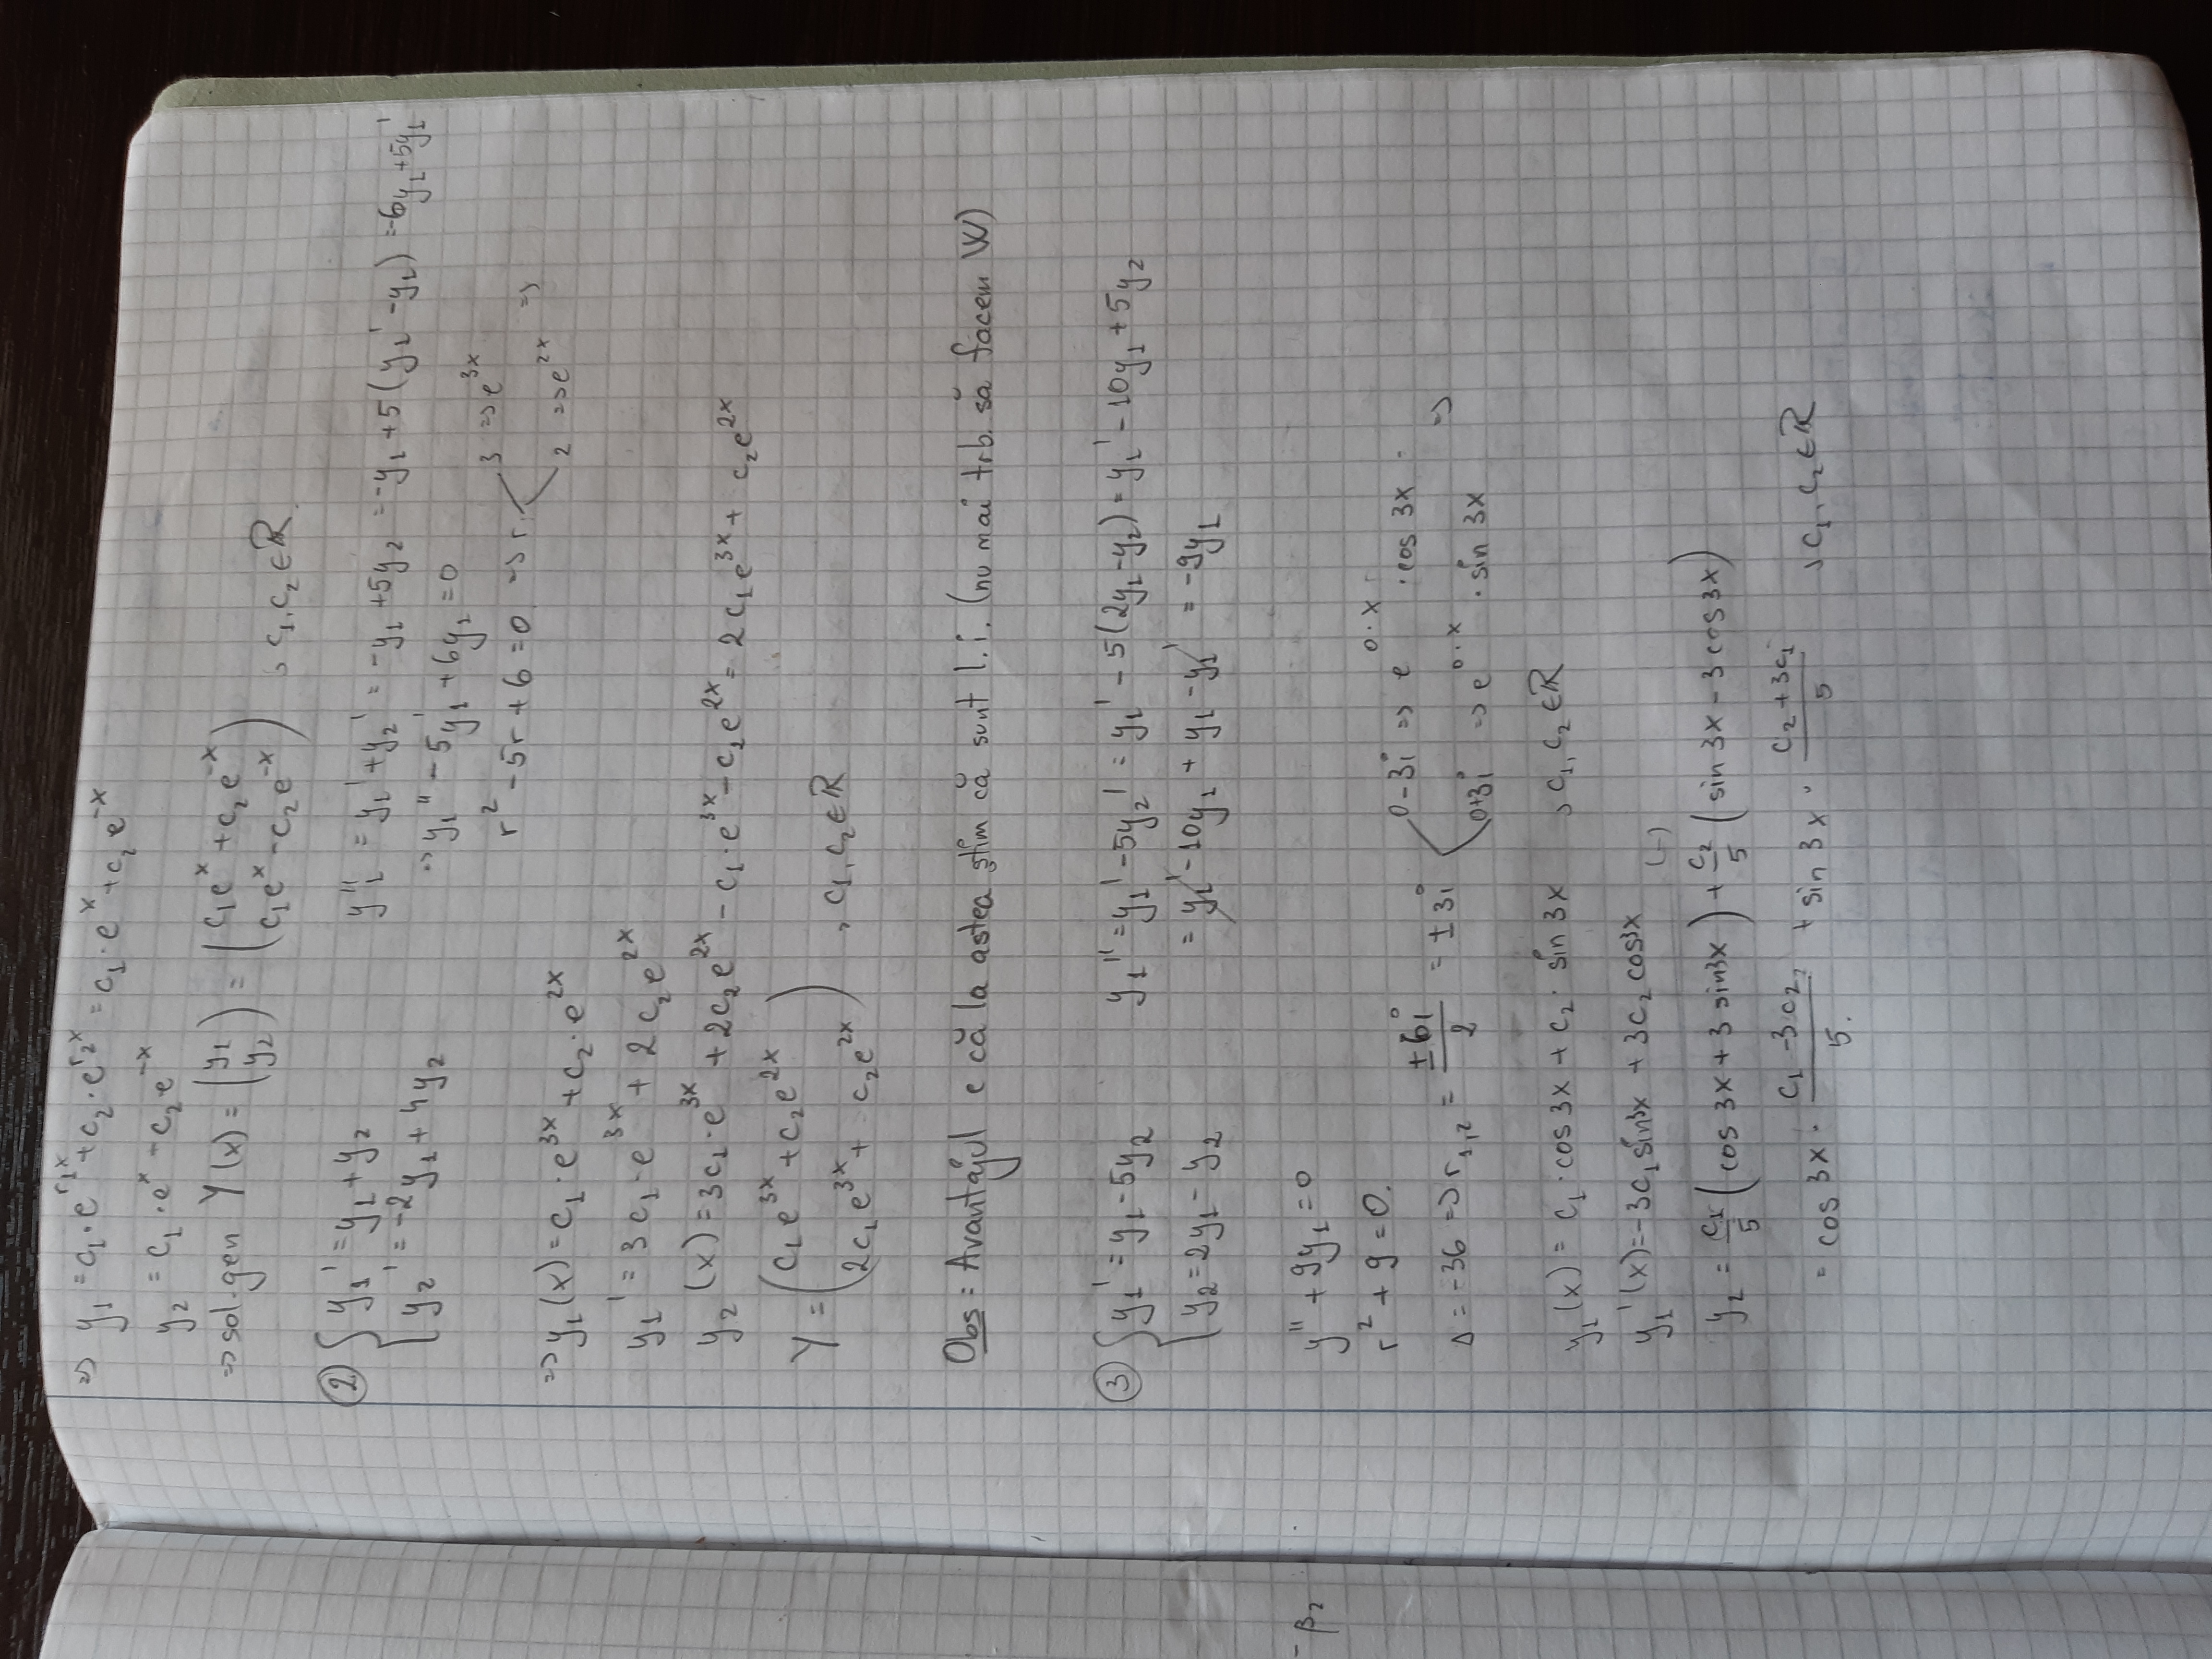 ⇒ y₁ = c₁·e^{r₁x} + c₂·e^{r₂x} = c₁·e^x + c₂e^{-x}
y₂ = c₁·e^x - c₂e^{-x}
⇒ sol.gen Y(x) = (y₁ y₂) = (c₁e^x + c₂e^{-x} c₁e^x - c₂e^{-x}), c₁, c₂ ∈ ℝ
② { y₁' = y₁ + y₂
y₂' = -2y₁ + 4y₂
y₁'' = y₁' + y₂' = -y₁ + 5y₂ = -y₁ + 5(y₁' - y₁) = -6y₁ + 5y₁'
⇒ y₁'' - 5y₁' + 6y₁ = 0
r² - 5r + 6 = 0 ⇒ r
3 ⇒ e^{3x}
2 ⇒ e^{2x} ⇒
⇒ y₁(x) = c₁·e^{3x} + c₂·e^{2x}
y₁' = 3c₁·e^{3x} + 2c₂e^{2x}
y₂(x) = 3c₁·e^{3x} + 2c₂e^{2x} - c₁·e^{3x} - c₂e^{2x} = 2c₁e^{3x} + c₂e^{2x}
Y = (c₁e^{3x} + c₂e^{2x} 2c₁e^{3x} + c₂e^{2x}), c₁, c₂ ∈ ℝ
Obs: Avantajul e că la astea știm că sunt l.i. (nu mai trb. să facem W)
③ { y₁' = y₁ - 5y₂
y₂ = 2y₁ - y₂
y₁'' = y₁' - 5y₂' = y₁' - 5(2y₁ - y₂) = y₁' - 10y₁ + 5y₂
= y₁' - 10y₁ + y₁ - y₁' = -9y₁
- β₂
y'' + 9y₁ = 0
r² + 9 = 0.
Δ = -36 ⇒ r₁,₂ = ±6i/2 = ±3i
0-3i ⇒ e^{0·x}·cos 3x
0+3i ⇒ e^{0·x}·sin 3x ⇒
y₁(x) = c₁·cos 3x + c₂·sin 3x, c₁, c₂ ∈ ℝ
y₁'(x) = -3c₁ sin3x + 3c₂ cos3x
(-)
y₂ = c₁/5 (cos 3x + 3 sin3x) + c₂/5 (sin 3x - 3 cos3x)
= cos 3x · (c₁ - 3c₂)/5. + sin 3x · (c₂ + 3c₁)/5, c₁, c₂ ∈ ℝ